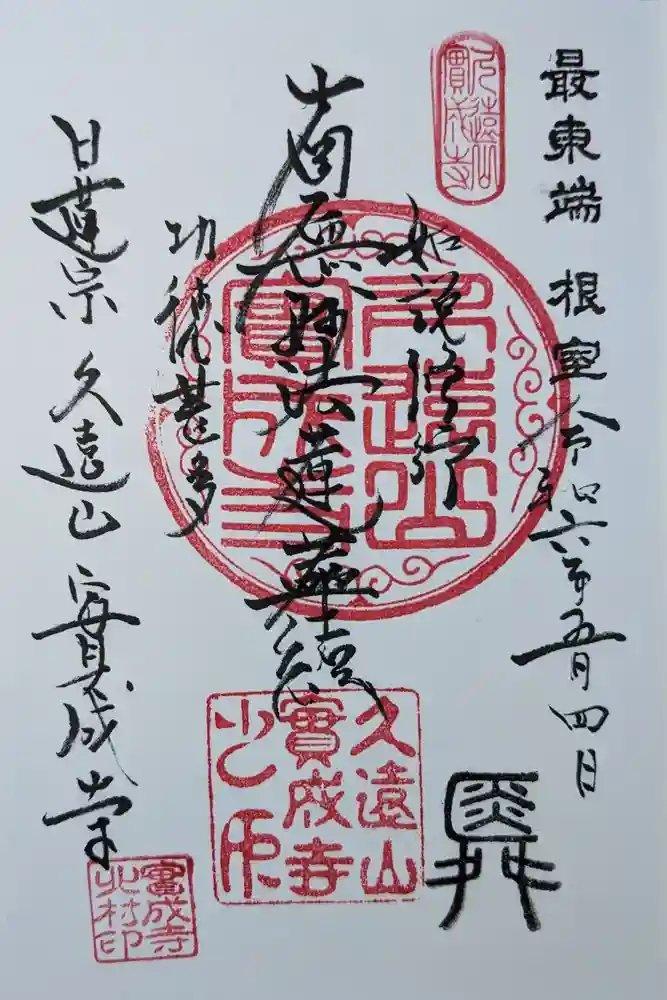 最東端 根室
令和六年五月四日
久遠山
實成寺
如説修行
南無妙法蓮華経
功徳甚多
久遠山
實成寺
久遠山
實成寺
之印
日蓮宗 久遠山 實成寺
實成寺
北村印